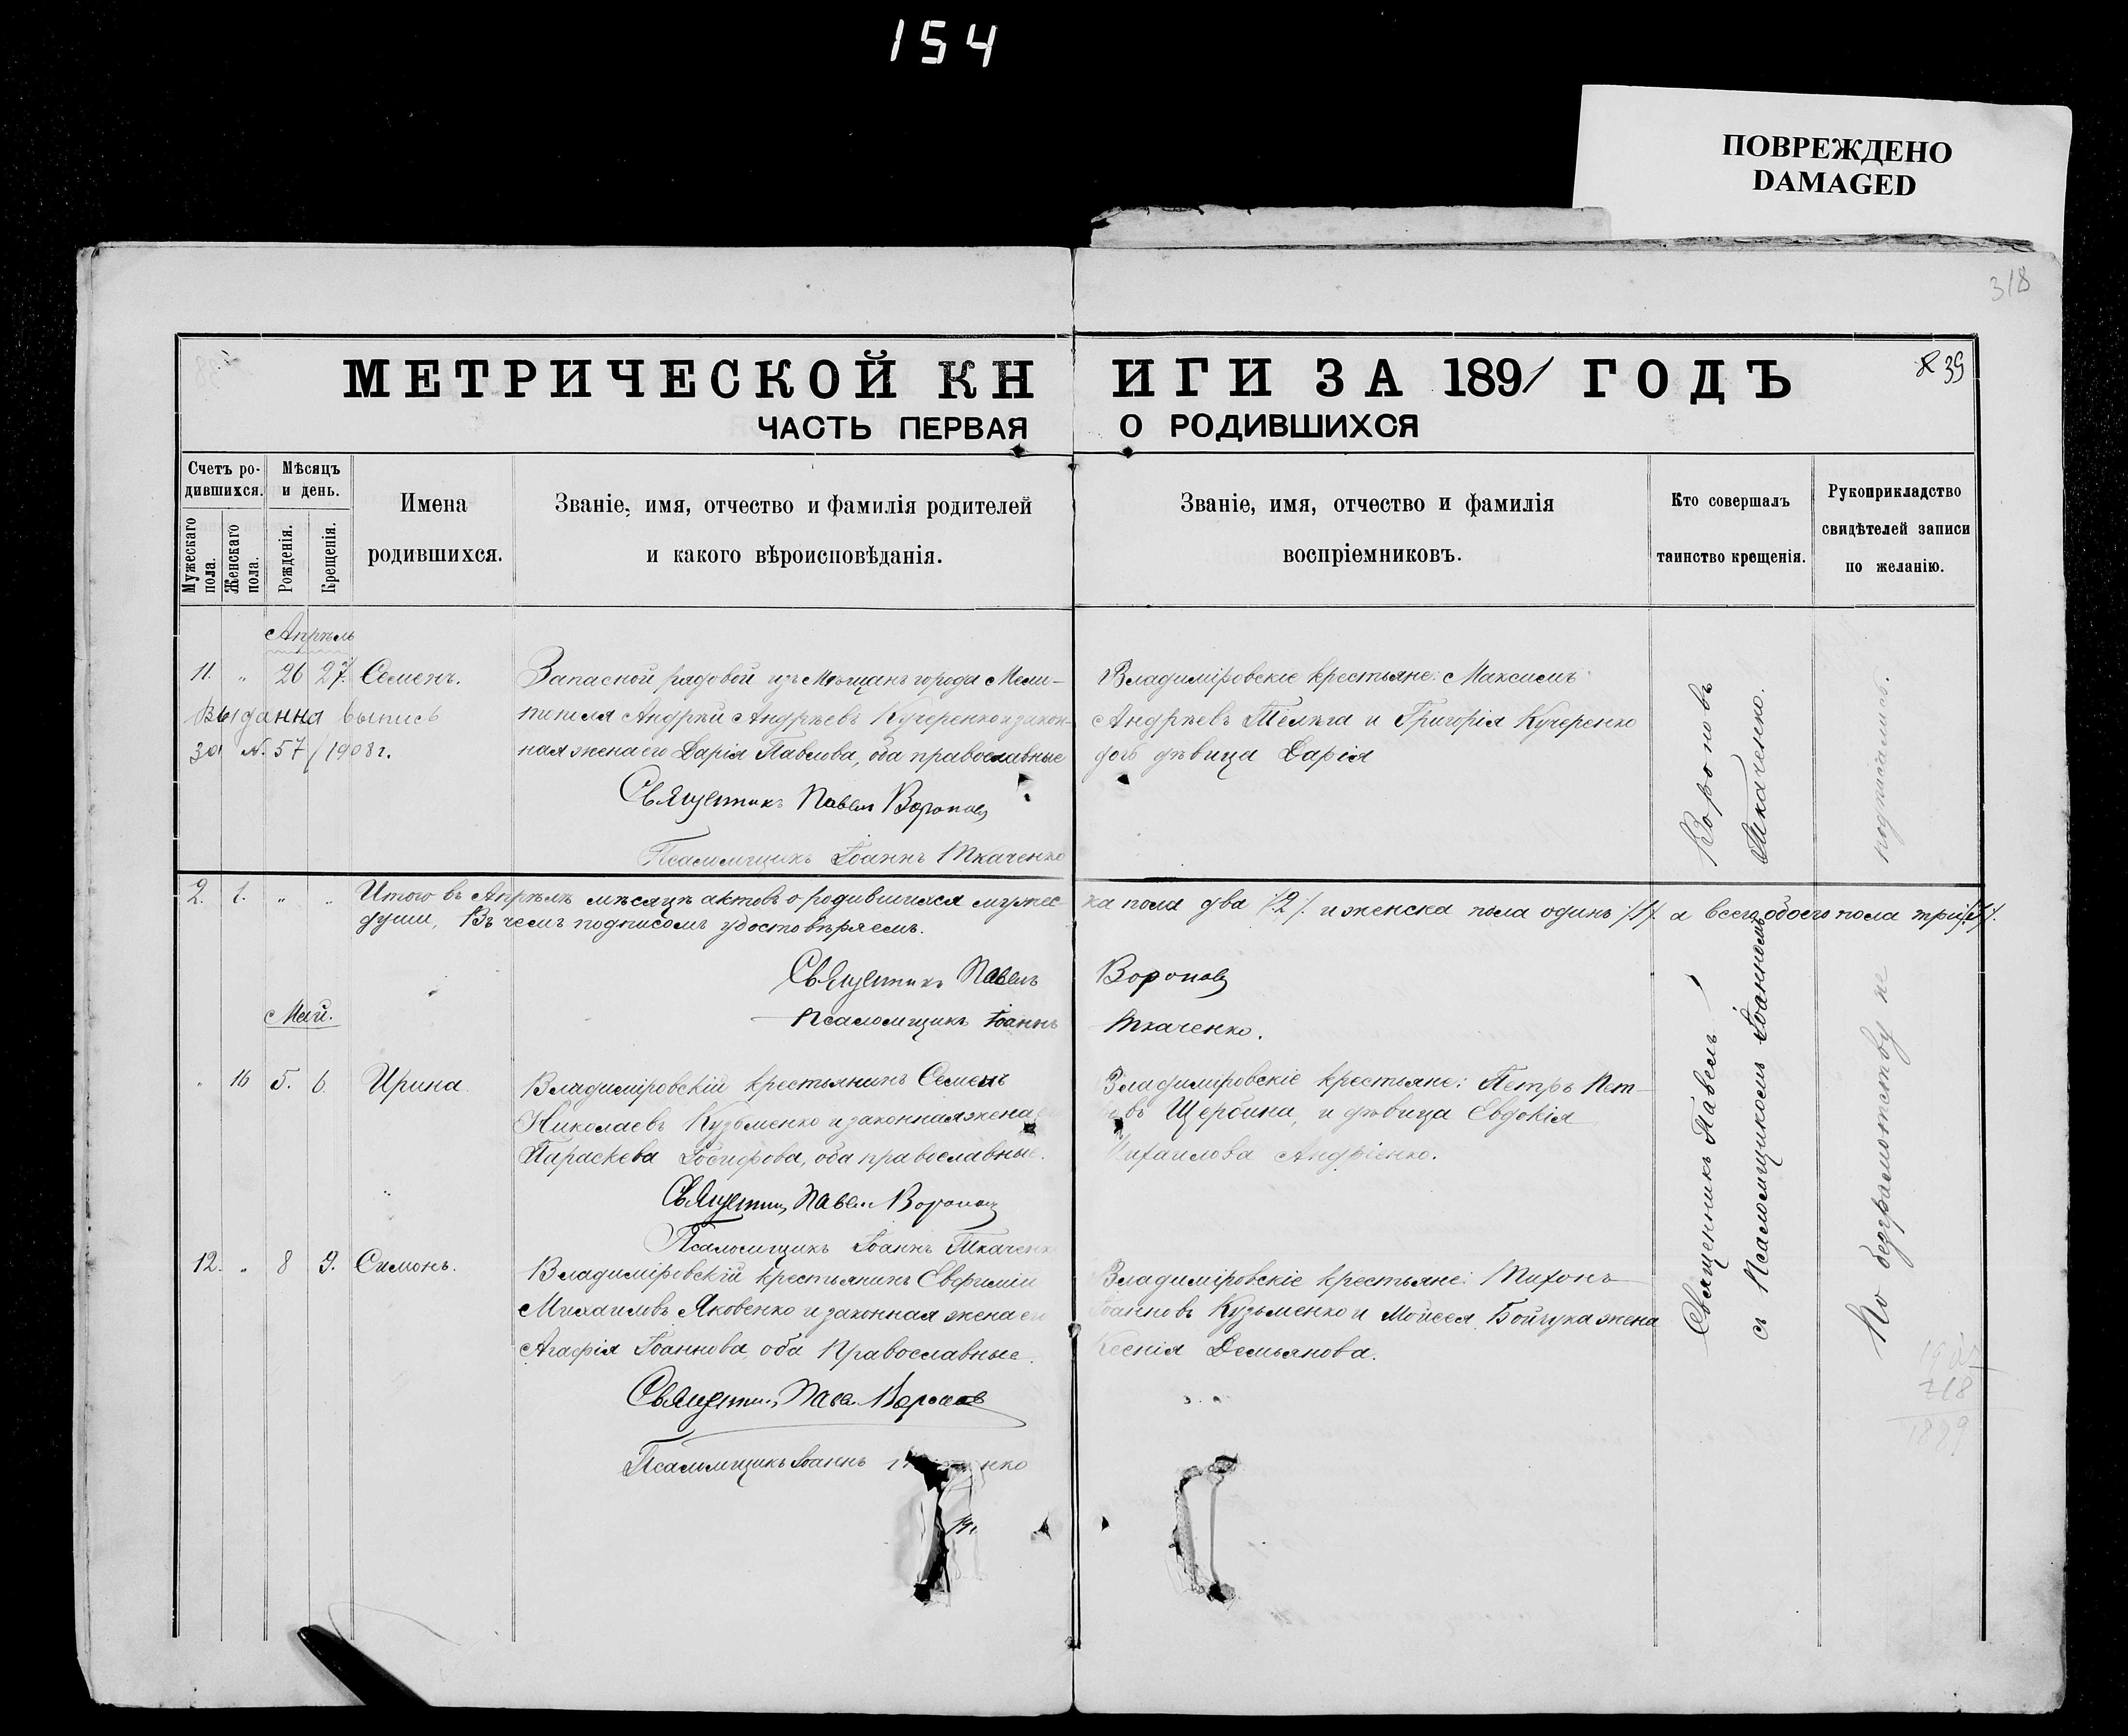 154
ПОВРЕЖДЕНО
DAMAGED
318
39
МЕТРИЧЕСКОЙ КНИГИ ЗА 1891 ГОДЪ
ЧАСТЬ ПЕРВАЯ О РОДИВШИХСЯ
Счетъ ро-
дившихся.
Мужескаго пола.
Женскаго пола.
Мѣсяцъ
и день.
Рожденія.
Крещенія.
Имена
родившихся.
Званіе, имя, отчество и фамилія родителей
и какого вѣроисповѣданія.
Званіе, имя, отчество и фамилія
воспріемниковъ.
Кто совершалъ
таинство крещенія.
Рукоприкладство
свидѣтелей записи
по желанію.
Апрѣль
11. " 26 27. Семенъ.
Выданна выпись
за № 57 / 1908 г.
Запасной рядовой изъ Мѣщанъ города Мели-
тополя Андрѣй Андрѣевъ Кучеренко и закон-
ная жена его Дарія Павлова, оба православные
Священникъ Павелъ Вороновъ
Псаломщикъ Іоаннъ Ткаченко
Владиміровскіе крестьяне: Максимъ
Андрѣевъ Телѣга и Григорія Кучеренко
дочь дѣвица Дарія
2. 1. " " Итого въ Апрѣлѣ мѣсяцѣ актовъ о родившихся мужес-
ка пола два /2/. и женска пола одинъ /1/. а всего обоего пола три /3/.
души, Въ чемъ подписомъ удостовѣряемъ.
Священникъ Павелъ Вороновъ
Псаломщикъ Іоаннъ Ткаченко.
Май.
" 16 5. 6. Ирина.
Владиміровскій крестьянинъ Семенъ
Николаевъ Кузьменко и законная жена
Параскева Іосифова, оба православные.
Священникъ Павелъ Вороновъ
Псаломщикъ Іоаннъ Ткаченко
Владиміровскіе крестьяне: Петръ Пет-
овъ Щербина, и дѣвица Евдокія
Михаилова Андріенко.
12. " 8 9. Симонъ.
Владиміровскій крестьянинъ Евфимій
Михаиловъ Яковенко и законная жена его
Агафія Іоаннова, оба Православные.
Священникъ Павелъ Вороновъ
Псаломщикъ Іоаннъ
Владиміровскіе крестьяне: Тихонъ
Іоанновъ Кузьменко и Мойсея Бойчука жена
Ксенія Демьянова.
Священникъ Павелъ Вороновъ
съ Псаломщикомъ Іоанномъ Ткаченко.
По безграмотству не подписались.